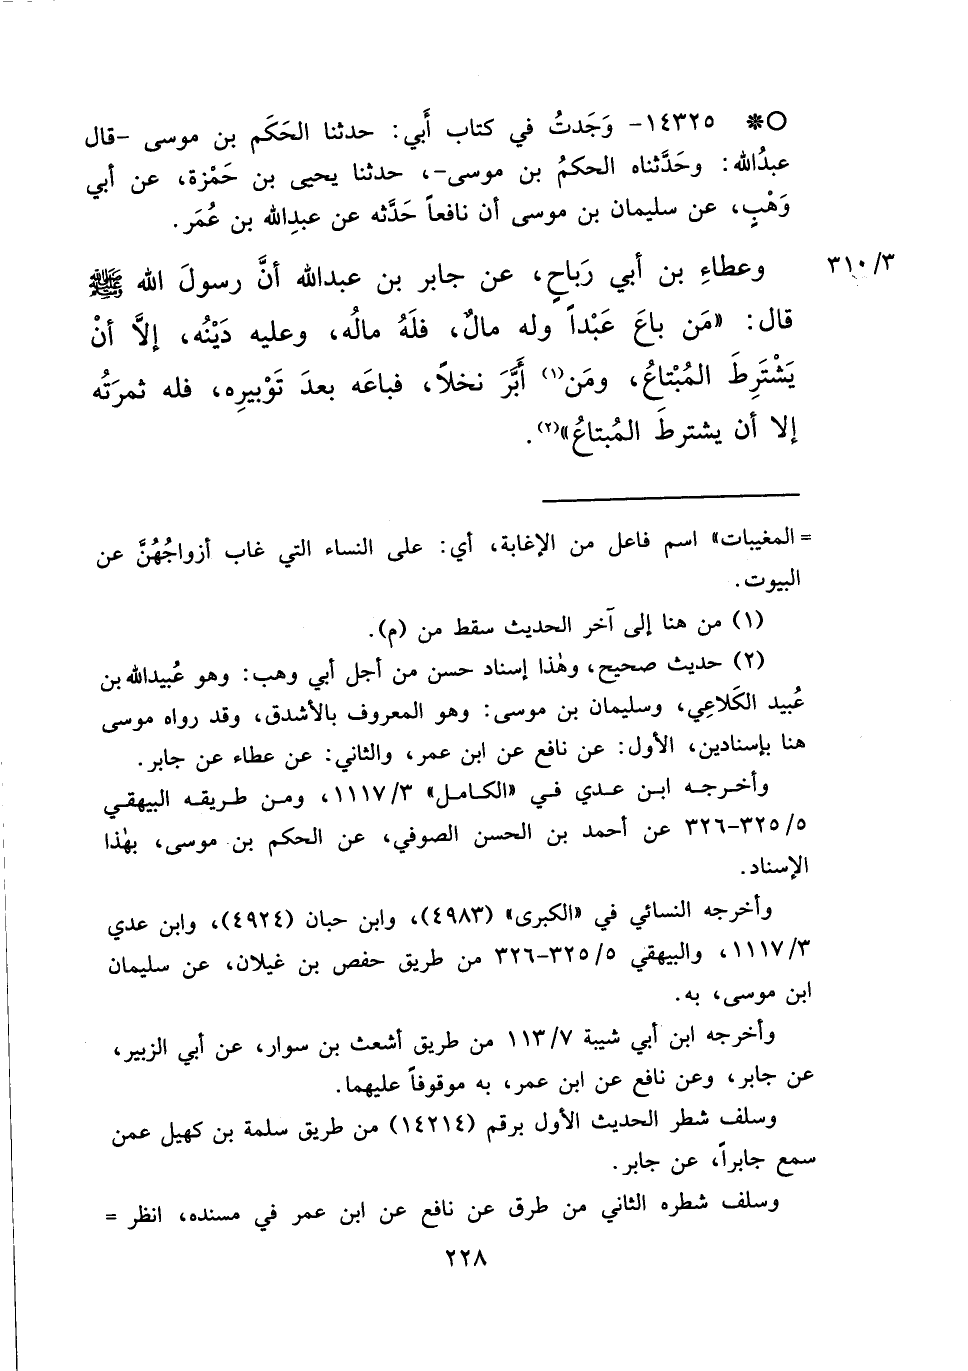 ○ * ١٤٣٢٥- وَجَدتُ في كتاب أَبي: حدثنا الحَكَم بن موسى -قال
عبدُالله: وحَدَّثناه الحكمُ بن موسى-، حدثنا يحيى بن حَمْزة، عن أبي
وَهْبٍ، عن سليمان بن موسى أن نافعاً حَدَّثه عن عبدِالله بن عُمَر.
٣١٠/٣
وعطاءِ بن أبي رَباحٍ، عن جابر بن عبدالله أنَّ رسولَ الله ﷺ
قال: «مَن باعَ عَبْداً وله مالٌ، فلَهُ مالُه، وعليه دَيْنُه، إلاَّ أنْ
يَشْتَرِطَ المُبْتاعُ، ومَن(١) أبَّرَ نخلاً، فباعَه بعدَ تَوْبيرِه، فله ثمرَتُه
إلا أن يشترطَ المُبتاعُ»(٢).
= المغيبات» اسم فاعل من الإغابة، أي: على النساء التي غاب أزواجُهُنَّ عن
البيوت.
(١) من هنا إلى آخر الحديث سقط من (م).
(٢) حديث صحيح، وهٰذا إسناد حسن من أجل أبي وهب: وهو عُبيدالله بن
عُبيد الكَلاعِي، وسليمان بن موسى: وهو المعروف بالأشدق، وقد رواه موسى
هنا بإسنادين، الأول: عن نافع عن ابن عمر، والثاني: عن عطاء عن جابر.
وأخرجه ابن عدي في «الكامل» ١١١٧/٣، ومن طريقه البيهقي
٣٢٥/٥-٣٢٦ عن أحمد بن الحسن الصوفي، عن الحكم بن موسى، بهٰذا
الإسناد.
وأخرجه النسائي في «الكبرى» (٤٩٨٣)، وابن حبان (٤٩٢٤)، وابن عدي
١١١٧/٣، والبيهقي ٣٢٥/٥-٣٢٦ من طريق حفص بن غيلان، عن سليمان
ابن موسى، به.
وأخرجه ابن أبي شيبة ١١٣/٧ من طريق أشعث بن سوار، عن أبي الزبير،
عن جابر، وعن نافع عن ابن عمر، به موقوفاً عليهما.
وسلف شطر الحديث الأول برقم (١٤٢١٤) من طريق سلمة بن كهيل عمن
سمع جابراً، عن جابر.
وسلف شطره الثاني من طرق عن نافع عن ابن عمر في مسنده، انظر =
٢٢٨